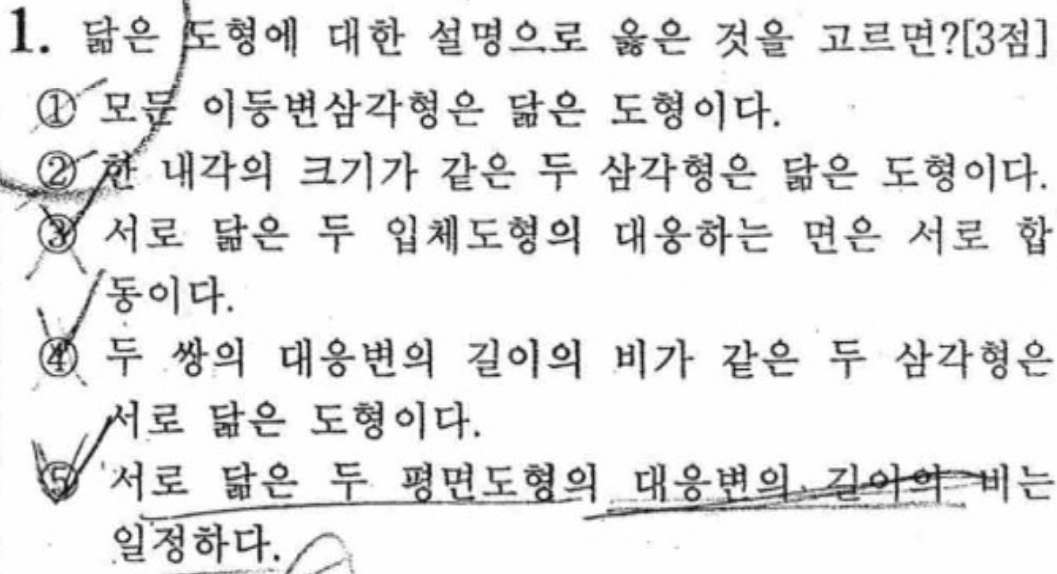 1. 닮은 도형에 대한 설명으로 옳은 것을 고르면?[3점]
① 모든 이등변삼각형은 닮은 도형이다.
② 한 내각의 크기가 같은 두 삼각형은 닮은 도형이다.
③ 서로 닮은 두 입체도형의 대응하는 면은 서로 합
동이다.
④ 두 쌍의 대응변의 길이의 비가 같은 두 삼각형은
서로 닮은 도형이다.
⑤ 서로 닮은 두 평면도형의 대응변의 길이의 비는
일정하다.